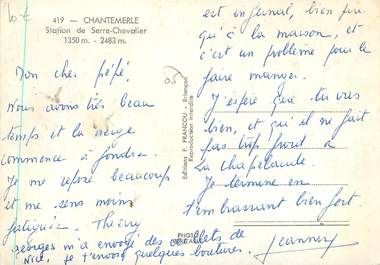 10 €
419 - CHANTEMERLE
Station de Serre-Chevalier
1350 m. - 2483 m.
Mon cher pépé,
Nous avons très beau
temps et la neige
commence à fondre.
Je me repose beaucoup
et me sens moins
fatiguée. Thierry
est infernal, bien pire
qu'à la maison, et
c'est un problème pour le
faire manger.
J'espère que tu vas
bien, et qu'il ne fait
pas trop froid à
La Chapelaude.
Je termine en
t'embrassant bien fort.
Jeannine
georges m'a envoyé des oeillets de
Nice, je t'envoie quelques boutures.
05
Editions F. FRANCOU - Briançon
Reproduction interdite
PHOTO